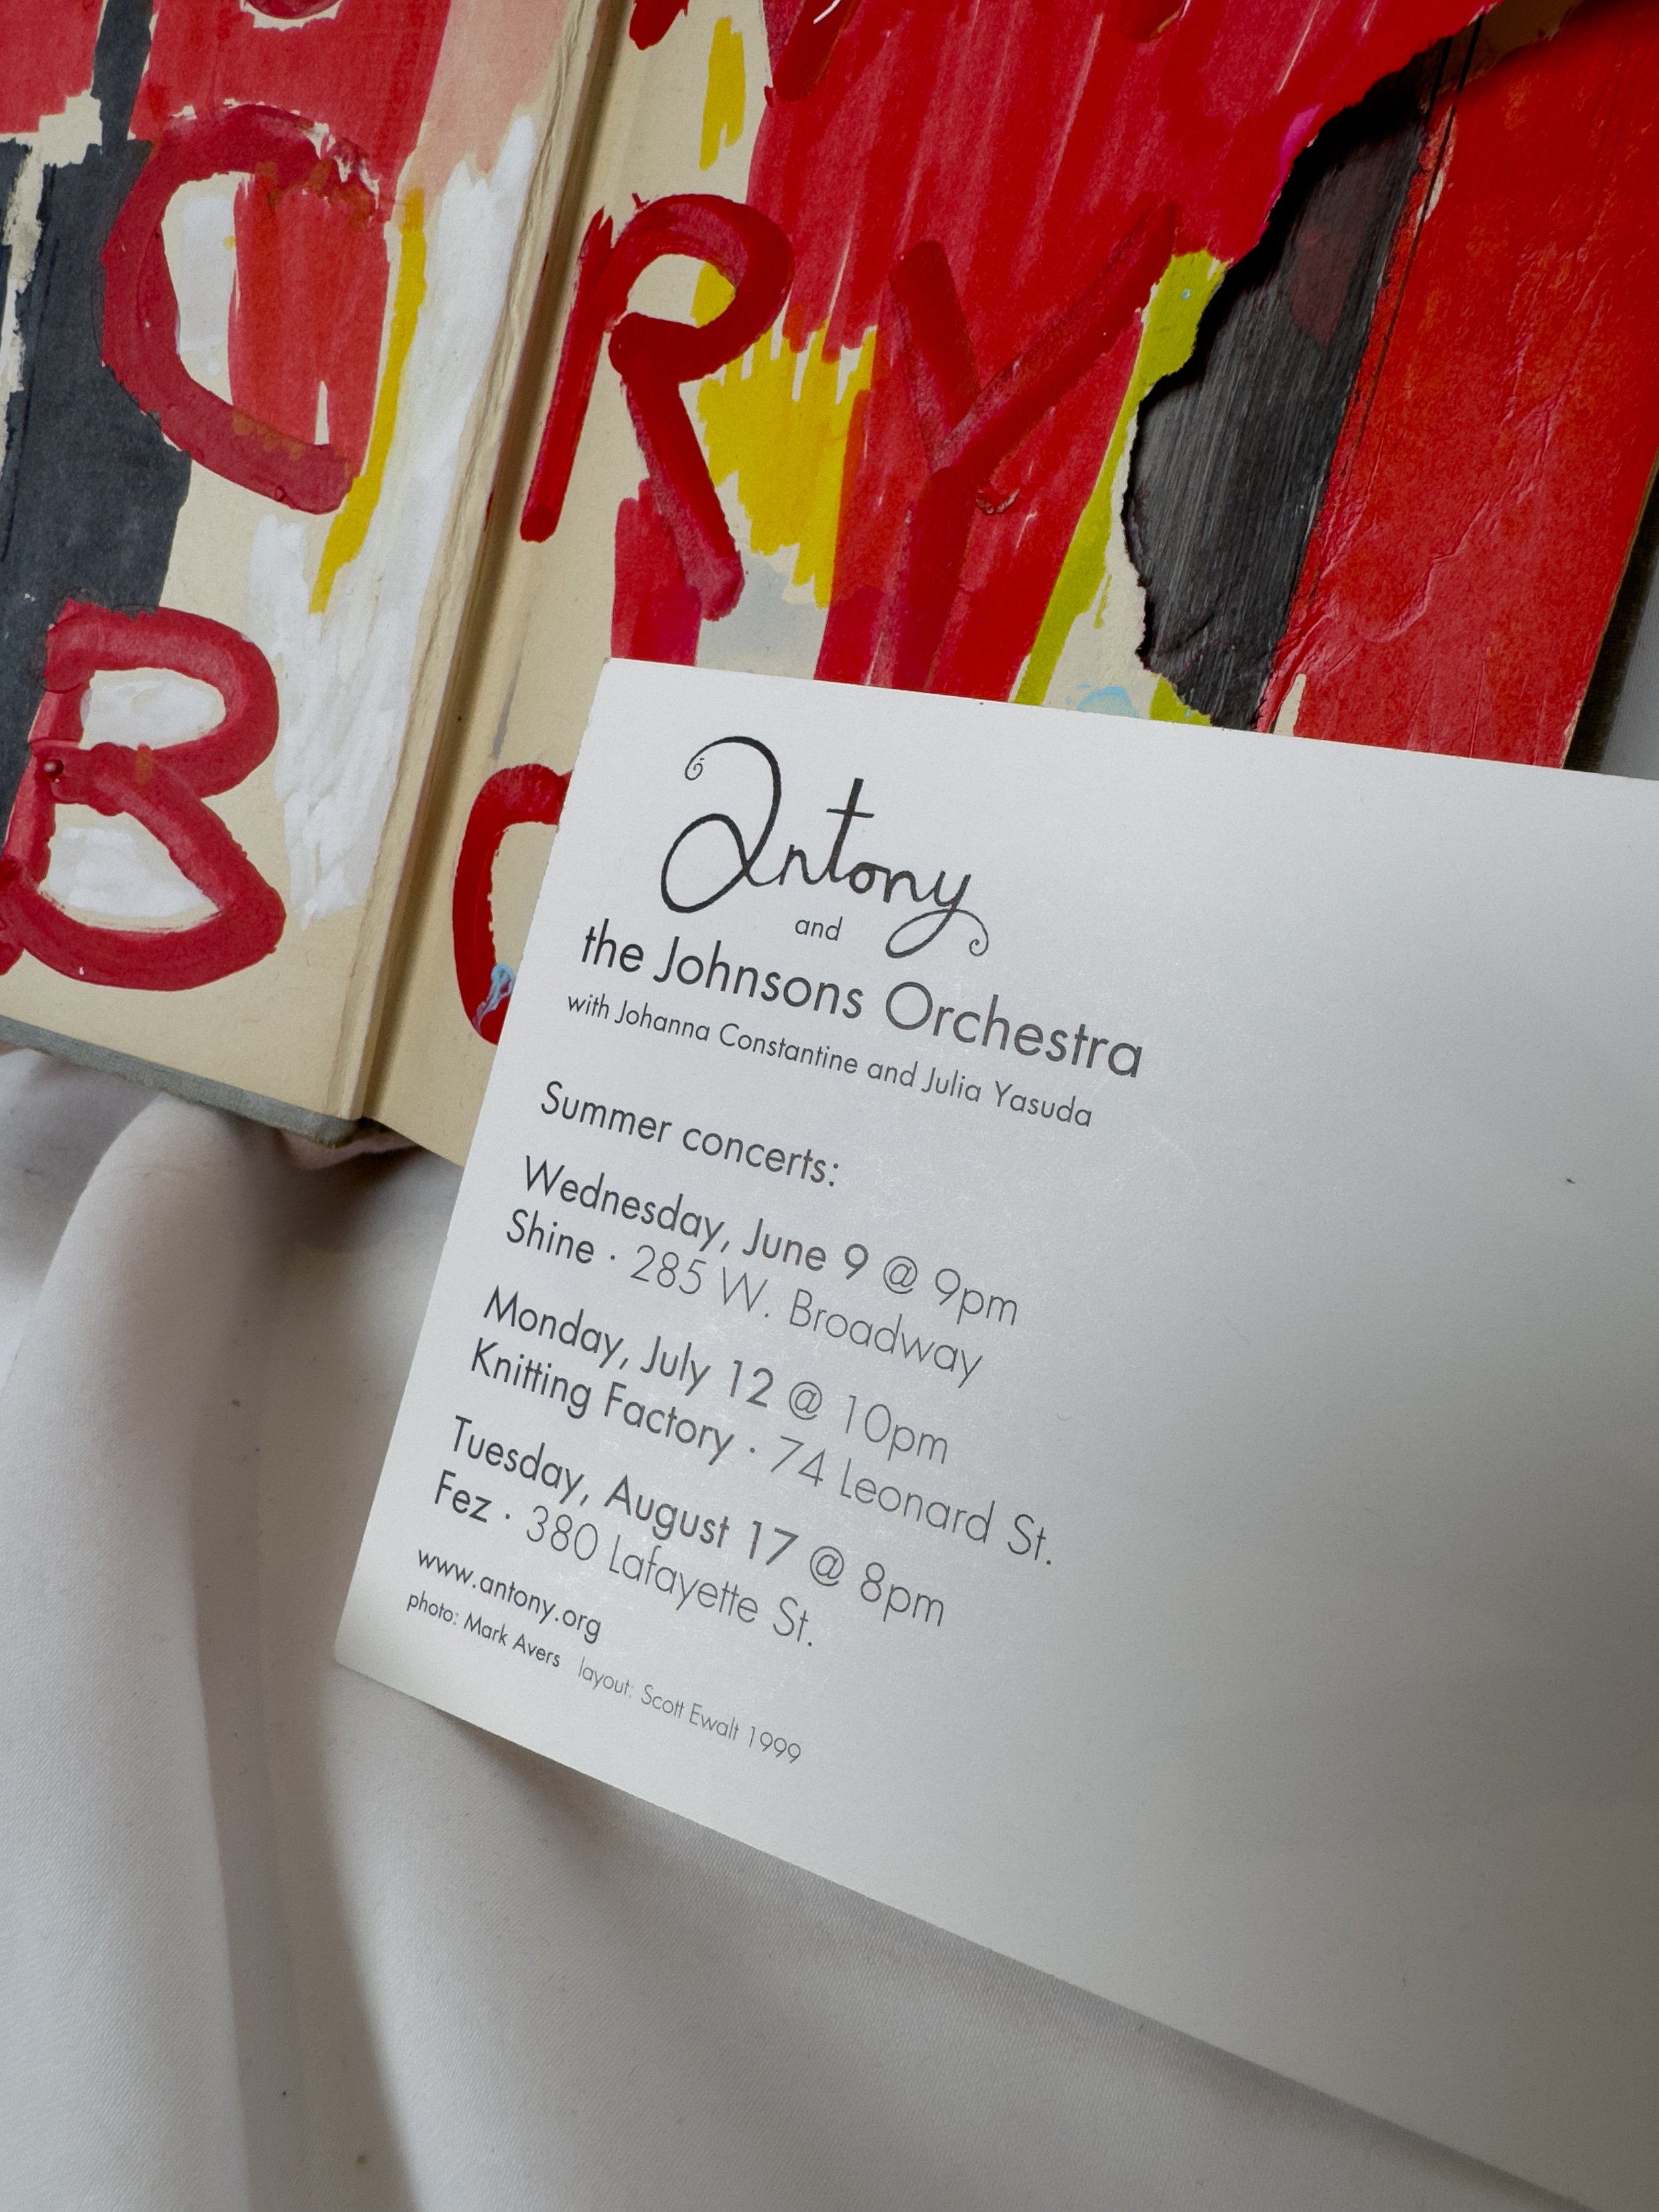 CRY
B
Antony
and
the Johnsons Orchestra
with Johanna Constantine and Julia Yasuda
Summer concerts:
Wednesday, June 9 @ 9pm
Shine · 285 W. Broadway
Monday, July 12 @ 10pm
Knitting Factory · 74 Leonard St.
Tuesday, August 17 @ 8pm
Fez · 380 Lafayette St.
www.antony.org
photo: Mark Avers layout: Scott Ewalt 1999